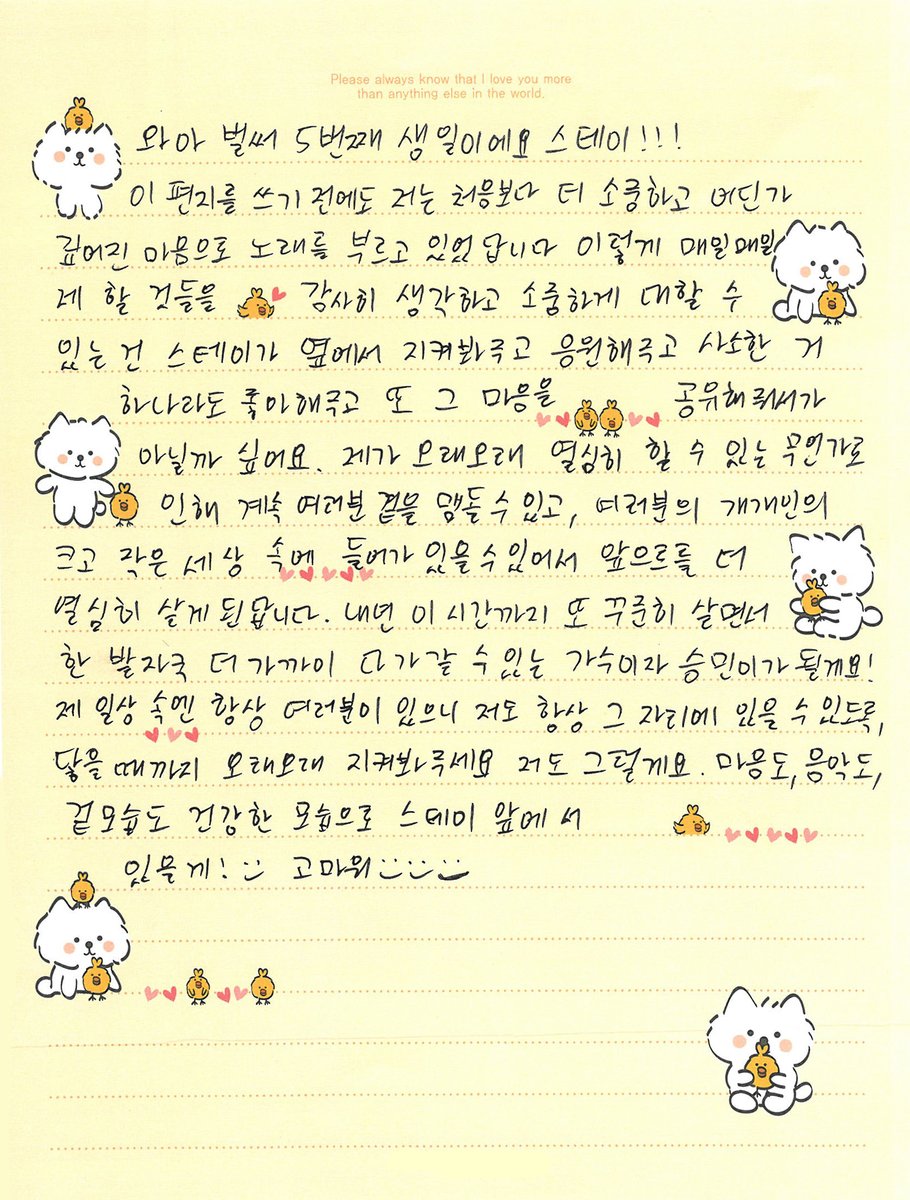 Please always know that I love you more
than anything else in the world.
와아 벌써 5번째 생일이에요 스테이!!!
이 편지를 쓰기 전에도 저는 처음보다 더 소중하고 어딘가
깊어진 마음으로 노래를 부르고 있었답니다 이렇게 매일매일
제 할 것들을 감사히 생각하고 소중하게 대할 수
있는건 스테이가 옆에서 지켜봐주고 응원해주고 사소한 거
하나라도 좋아해주고 또 그 마음을 공유해줘서가
아닐까 싶어요. 제가 오래오래 열심히 할 수 있는 무언가로
인해 계속 여러분 곁을 맴돌 수 있고, 여러분의 개개인의
크고 작은 세상 속에 들어가 있을 수 있어서 앞으로를 더
열심히 살게 된답니다. 내년 이 시간까지 또 꾸준히 살면서
한 발자국 더 가까이 다가갈 수 있는 가수이자 승민이가 될게요!
제 일상 속엔 항상 여러분이 있으니 저도 항상 그 자리에 있을 수 있도록,
닿을 때까지 오래오래 지켜봐주세요 저도 그럴게요. 마음도, 음악도,
겉모습도 건강한 모습으로 스테이 앞에서
있을게! 고마워